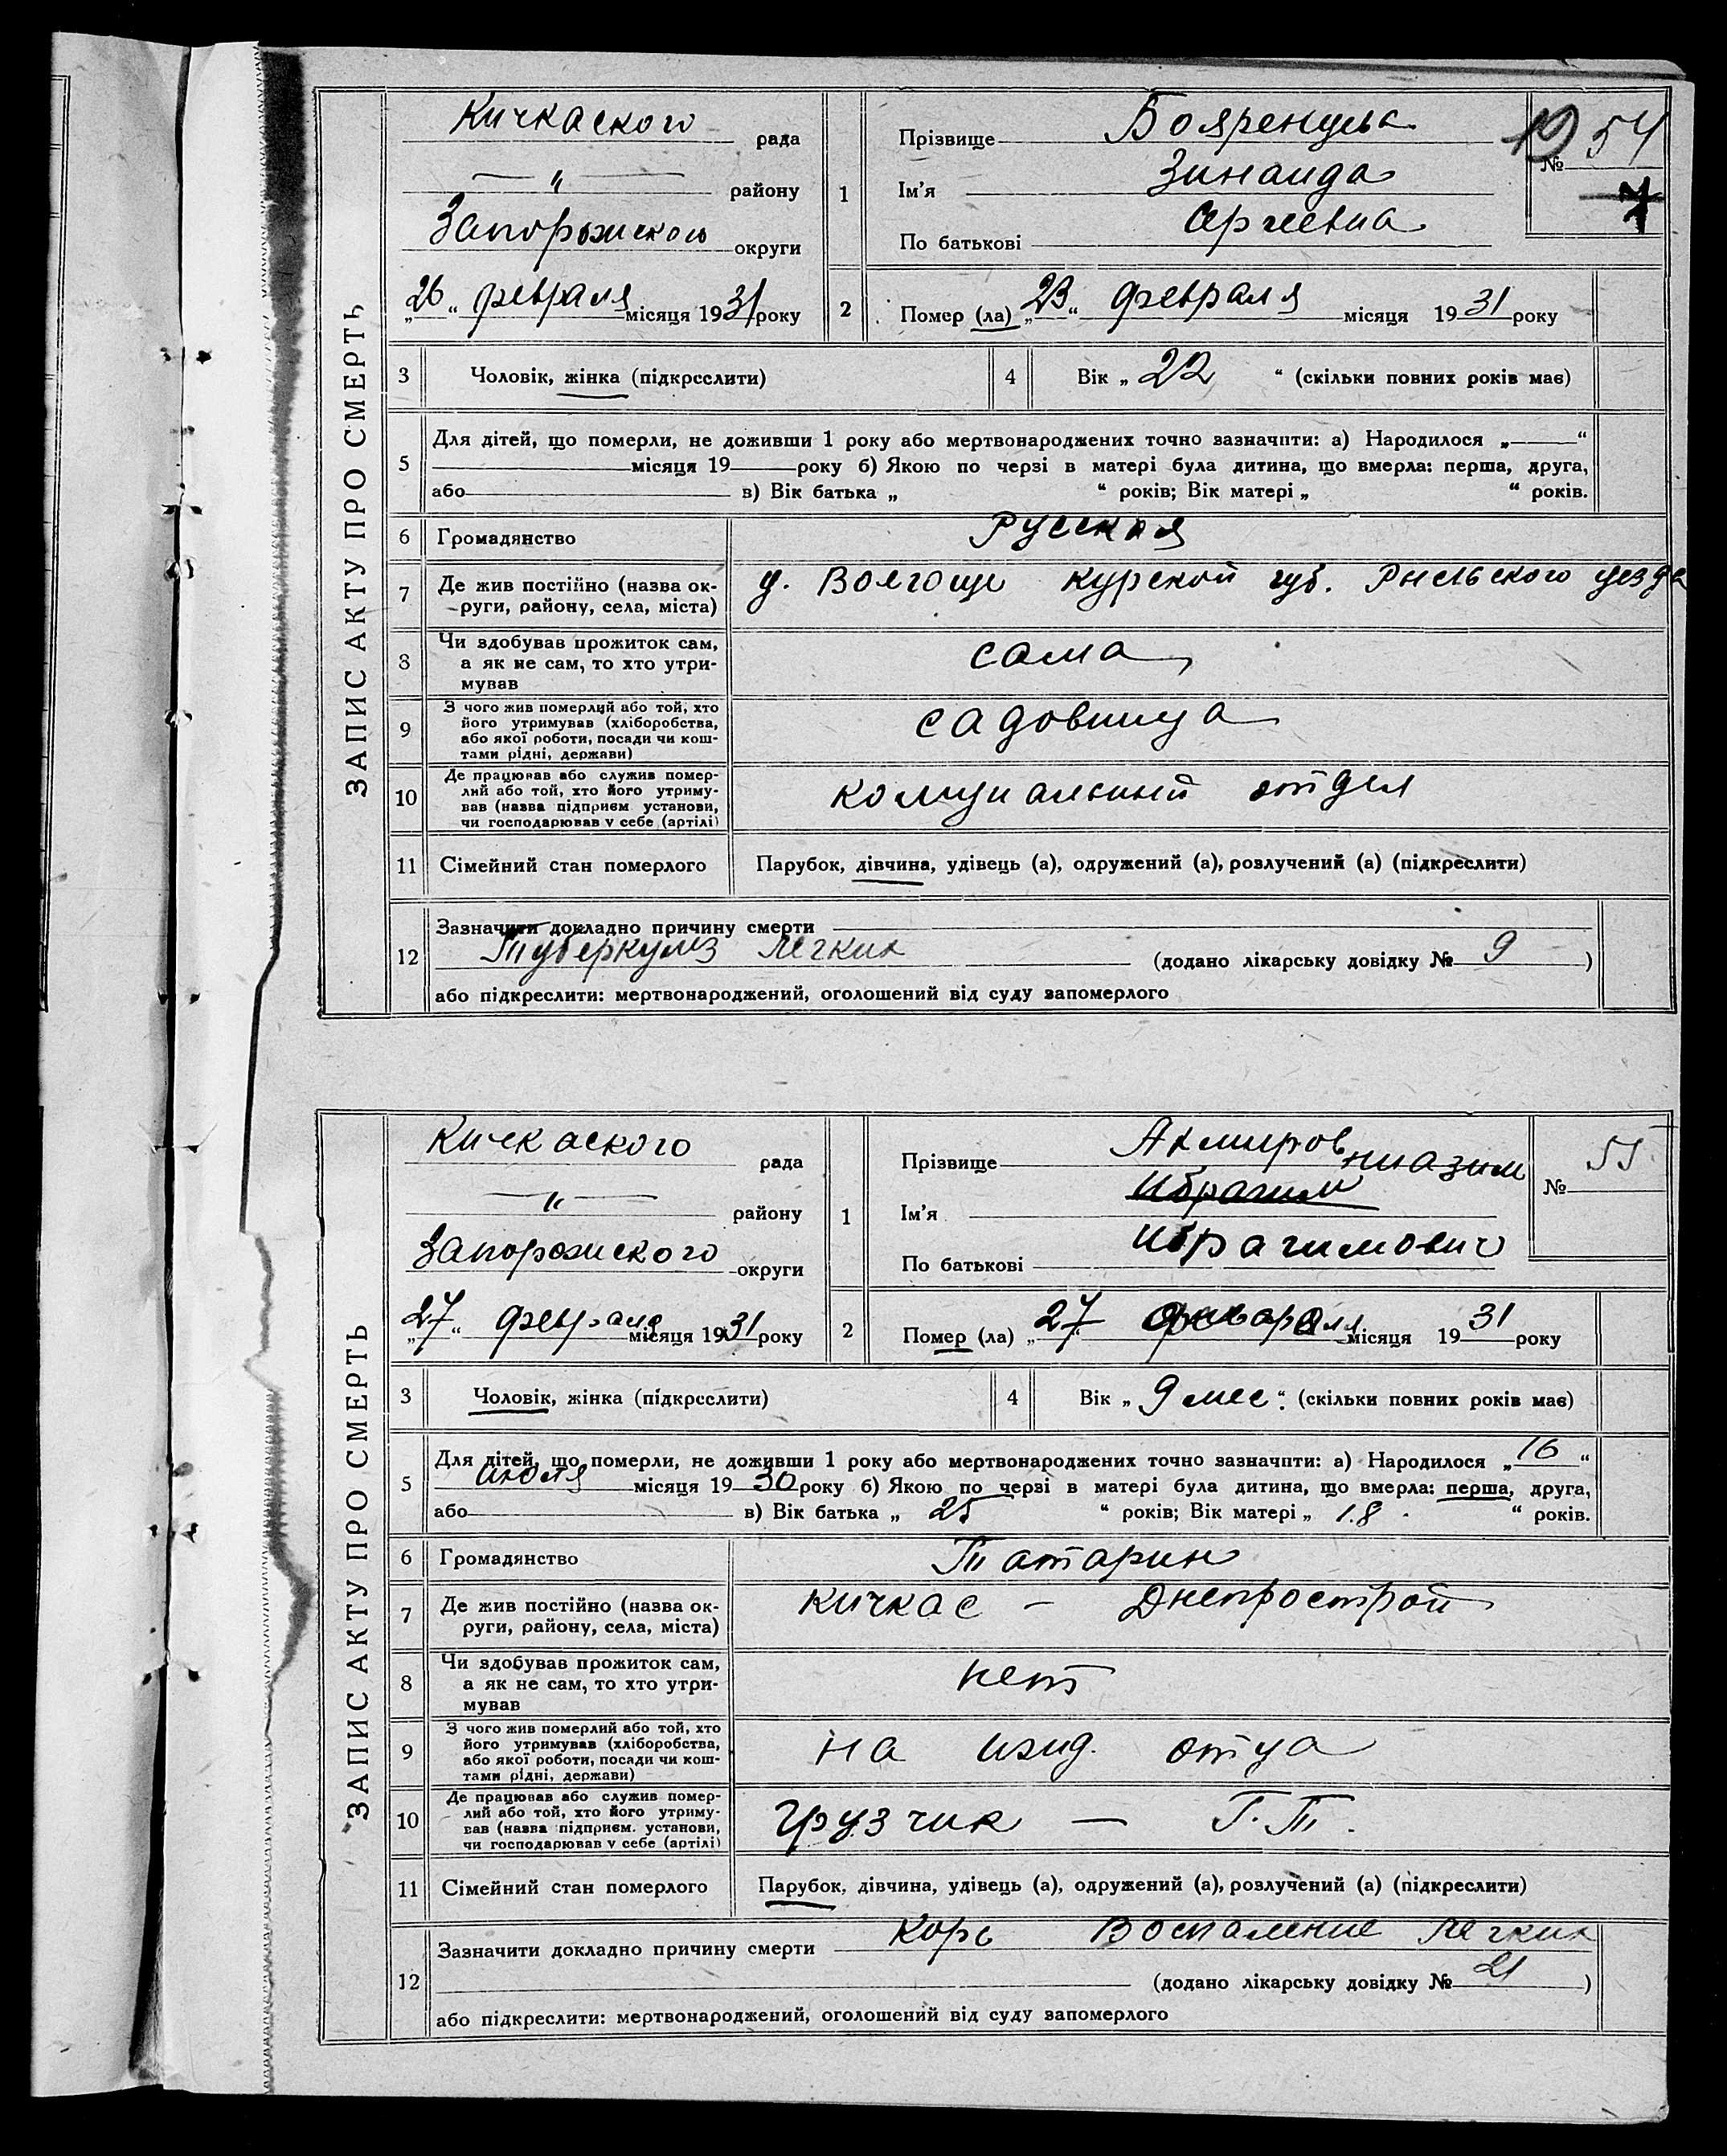 ЗАПИС АКТУ ПРО СМЕРТЬ
Кичкаского рада
— " — району
Запорожского округи
„26“ февраля місяця 1931 року
1
Прізвище Бояренцева
Ім'я Зинаида
По батькові Сергеевна
19 № 54
7
2
Помер (ла) „23“ февраля місяця 1931 року
3 Чоловік, жінка (підкреслити)
4 Вік „22“ (скільки повних років має)
5 Для дітей, що померли, не доживши 1 року або мертвонароджених точно зазначити: а) Народилося „——“
місяця 19 року б) Якою по черзі в матері була дитина, що вмерла: перша, друга,
або в) Вік батька „ “ років; Вік матері „ “ років.
6 Громадянство Русская
7 Де жив постійно (назва ок-
руги, району, села, міста)
д. Курской губ. Рыльского уезда
8 Чи здобував прожиток сам,
а як не сам, то хто утри-
мував
сама
9 З чого жив померлий або той, хто
його утримував (хліборобства,
або якої роботи, посади чи кош-
тами рідні, держави)
садовница
10 Де працював або служив помер-
лий або той, хто його утриму-
вав (назва підприєм установи,
чи господарював у себе (артілі)
комунальный отдел
11 Сімейний стан померлого Парубок, дівчина, удівець (а), одружений (а), розлучений (а) (підкреслити)
12 Зазначити докладно причину смерти
Туберкулез легких (додано лікарську довідку № 9)
або підкреслити: мертвонароджений, оголошений від суду запомерлого
ЗАПИС АКТУ ПРО СМЕРТЬ
Кичкаского рада
— " — району
Запорожского округи
„27“ февраля місяця 1931 року
1
Прізвище Акмиров
Ім'я Ибрагим ниазим
По батькові Ибрагимович
№ 55
2
Помер (ла) „27“ місяця 1931 року
3 Чоловік, жінка (підкреслити)
4 Вік „9 мес“. (скільки повних років має)
5 Для дітей, що померли, не доживши 1 року або мертвонароджених точно зазначити: а) Народилося „16“
июля місяця 1930 року б) Якою по черзі в матері була дитина, що вмерла: перша, друга,
або в) Вік батька „25“ років; Вік матері „18“ років.
6 Громадянство Татарин
7 Де жив постійно (назва ок-
руги, району, села, міста)
Кичкас – Днепрострой
8 Чи здобував прожиток сам,
а як не сам, то хто утри-
мував
нет
9 З чого жив померлий або той, хто
його утримував (хліборобства,
або якої роботи, посади чи кош-
тами рідні, держави)
на ижд. отца
10 Де працював або служив помер-
лий або той, хто його утриму-
вав (назва підприєм. установи,
чи господарював у себе (артілі)
грузчик — Г.Т.
11 Сімейний стан померлого Парубок, дівчина, удівець (а), одружений (а), розлучений (а) (підкреслити)
12 Зазначити докладно причину смерти Корь Воспаление легких
(додано лікарську довідку № 21)
або підкреслити: мертвонароджений, оголошений від суду запомерлого